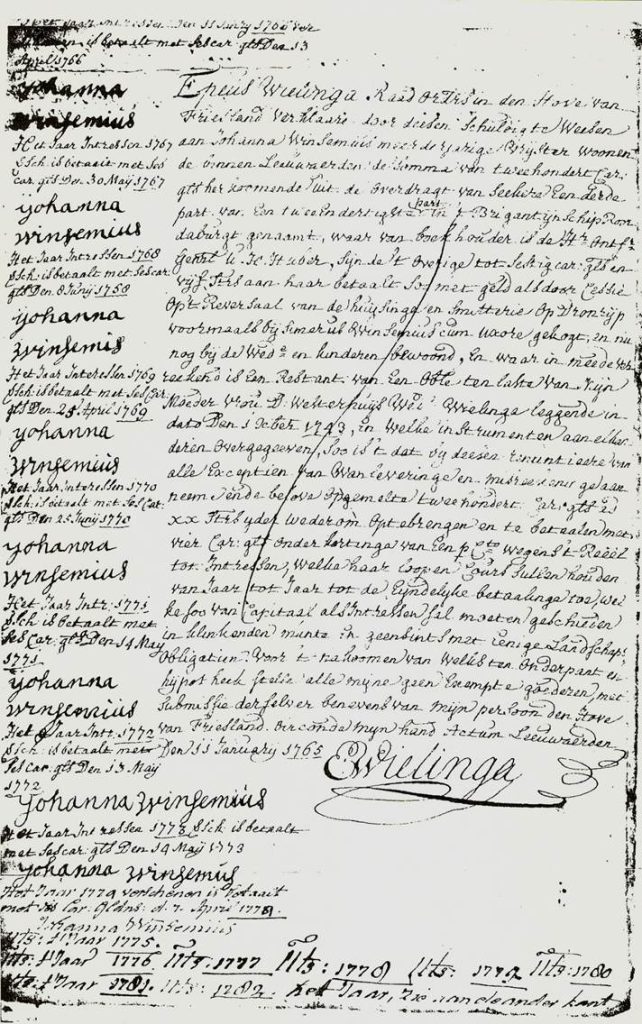 Het Jaar Intressen Den 11 Janry 1766 ver
is betaalt met ses car. gls Den 13
April 1766
Johanna
Winsemius
Het Jaar Intressen 1767
Sch. is betaalt met ses
car. gls Den 30 Maij 1767
Johanna
Winsemius
Het Jaar Intressen 1768
Sch. is betaalt met ses car.
gls Den 8 Junij 1768
Johanna
Winsemis
Het Jaar Intressen 1769
Sch. is betaalt met ses Car.
gls Den 29 April 1769
Johanna
Winsemius
Het Jaar Intressen 1770
Sch. is betaalt met ses Car.
gls Den 25 Junij 1770
Johanna
Winsemius
Het Jaar Intr: 1771
Sch is betaalt met
ses Car. gls Den 14 Maij
1771
Johanna
Winsemius
Het Jaar Intr: 1772
Sch. is betaalt met
ses car. gls Den 13 Maij
1772
Johanna Winsemius
Het Jaar Intressen 1773 Sch. is betaalt
met ses car. gls Den 14 Maij 1773
Johanna Winsemius
Het Jaar 1774 verschenen is betaalt
met ses Car. Gldns. d. 7. April 1774.
Johanna Winsemius
Uts: 't Jaar 1775.
Uts: 't Jaar 1776 Uts: 1777 Uts: 1778 Uts: 1779 Uts: 1780
Uts: 't Jaar 1781. Uts: 1782. het Jaar, Zie aan de ander kant
Epeus Wielinga Raad Ordris in den Hove van
Friesland verklaare door deesen Schuldigh Weesen
aan Johanna Winsemius meerderjarige Vrijster woonen
de binnen Leeuwaerden de Somma van tweehondert Car:
gls her koomende uit de Overdragt van seekere Een derde
part van Een twee Endertigste part in 't Brigantijn Schip Ron
daburgt genaamt, waar van boek houder is de Hr Ontf.
Huber, Sijnde 't Overige tot Sestig car: gls en
vijf Strs aan haar betaalt Soo met geld als door Cessie
Op't Reversaal van de huijsinge en Smitterie Op Dronrijp
voormaals bij Simerus Winsemius cum uxore gekogt, en nu
nog bij de Wede en kinderen bewoond, En waar in meede ver
reekend is Een Restant van Een Oble ten laste van Mijn
Moeder Vrou D. Welterhuijs Wede Wielinga leggende in
dato Den 1 Octber 1743, en Welke instrumenten aan elkan
deren Overgegeven, Soo is't dat bij deesen renuntieere van
alle Exceptien van Wan leveringe en misreekens gedaan
neem Ende beloove Opgemelte tweehondert Car: gls
xx Strs ijder wederom Op te brengen en te betaalen met
vier Car: gls onder kortinge van Een p Cto Wegens 't Reëel
tot Intressen, Welke haar loop en Cours Sullen houden
van Jaar tot Jaar tot de Eijndelijke betaalinge toe, wel
ke soo van Capitaal als Intressen Sal moeten geschieden
in klinkenden munte En geensints met Eenige Landschaps
Obligatien. Voor 't nakoomen van Welks ten Onderpant en
hijpotheek stelle alle mijne geen Exempte goederen, met
Submissie der selver benevens van mijn persoon den Hove
van Friesland. Oirconde mijn hand Actum Leeuwaerden
Den 11 January 1765
EWielinga